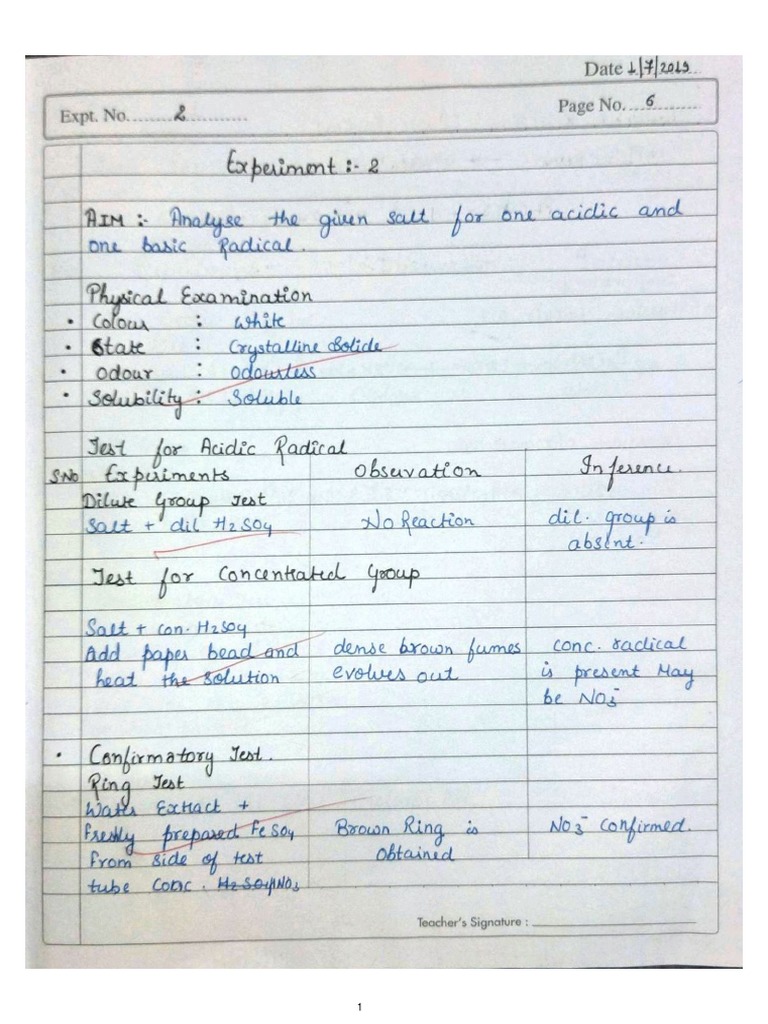 Date 1/7/2019
Expt. No. 2
Page No. 6
Experiment :- 2
AIM :- Analyse the given salt for one acidic and
one basic Radical.
Physical Examination
• Colour : White
• State : Crystalline Solide
• Odour : Odourless
• Solubility : Soluble
Test for Acidic Radical
S.No Experiments Observation Inference.
Dilute Group Test
Salt + dil H2SO4 No Reaction dil. group is
absent.
Test for Concentrated Group
Salt + con. H2SO4
Add paper bead and dense brown fumes conc. radical
heat the solution evolves out is present May
be NO3-
• Confirmatory Test.
Ring Test
Water Extract +
freshly prepared FeSO4 Brown Ring is NO3- Confirmed.
from side of test obtained
tube conc. H2SO4
Teacher's Signature :
1